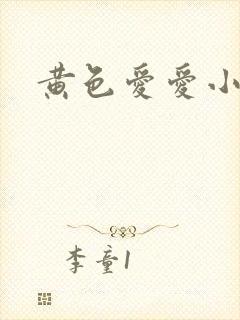 黄色爱愛小
李童1